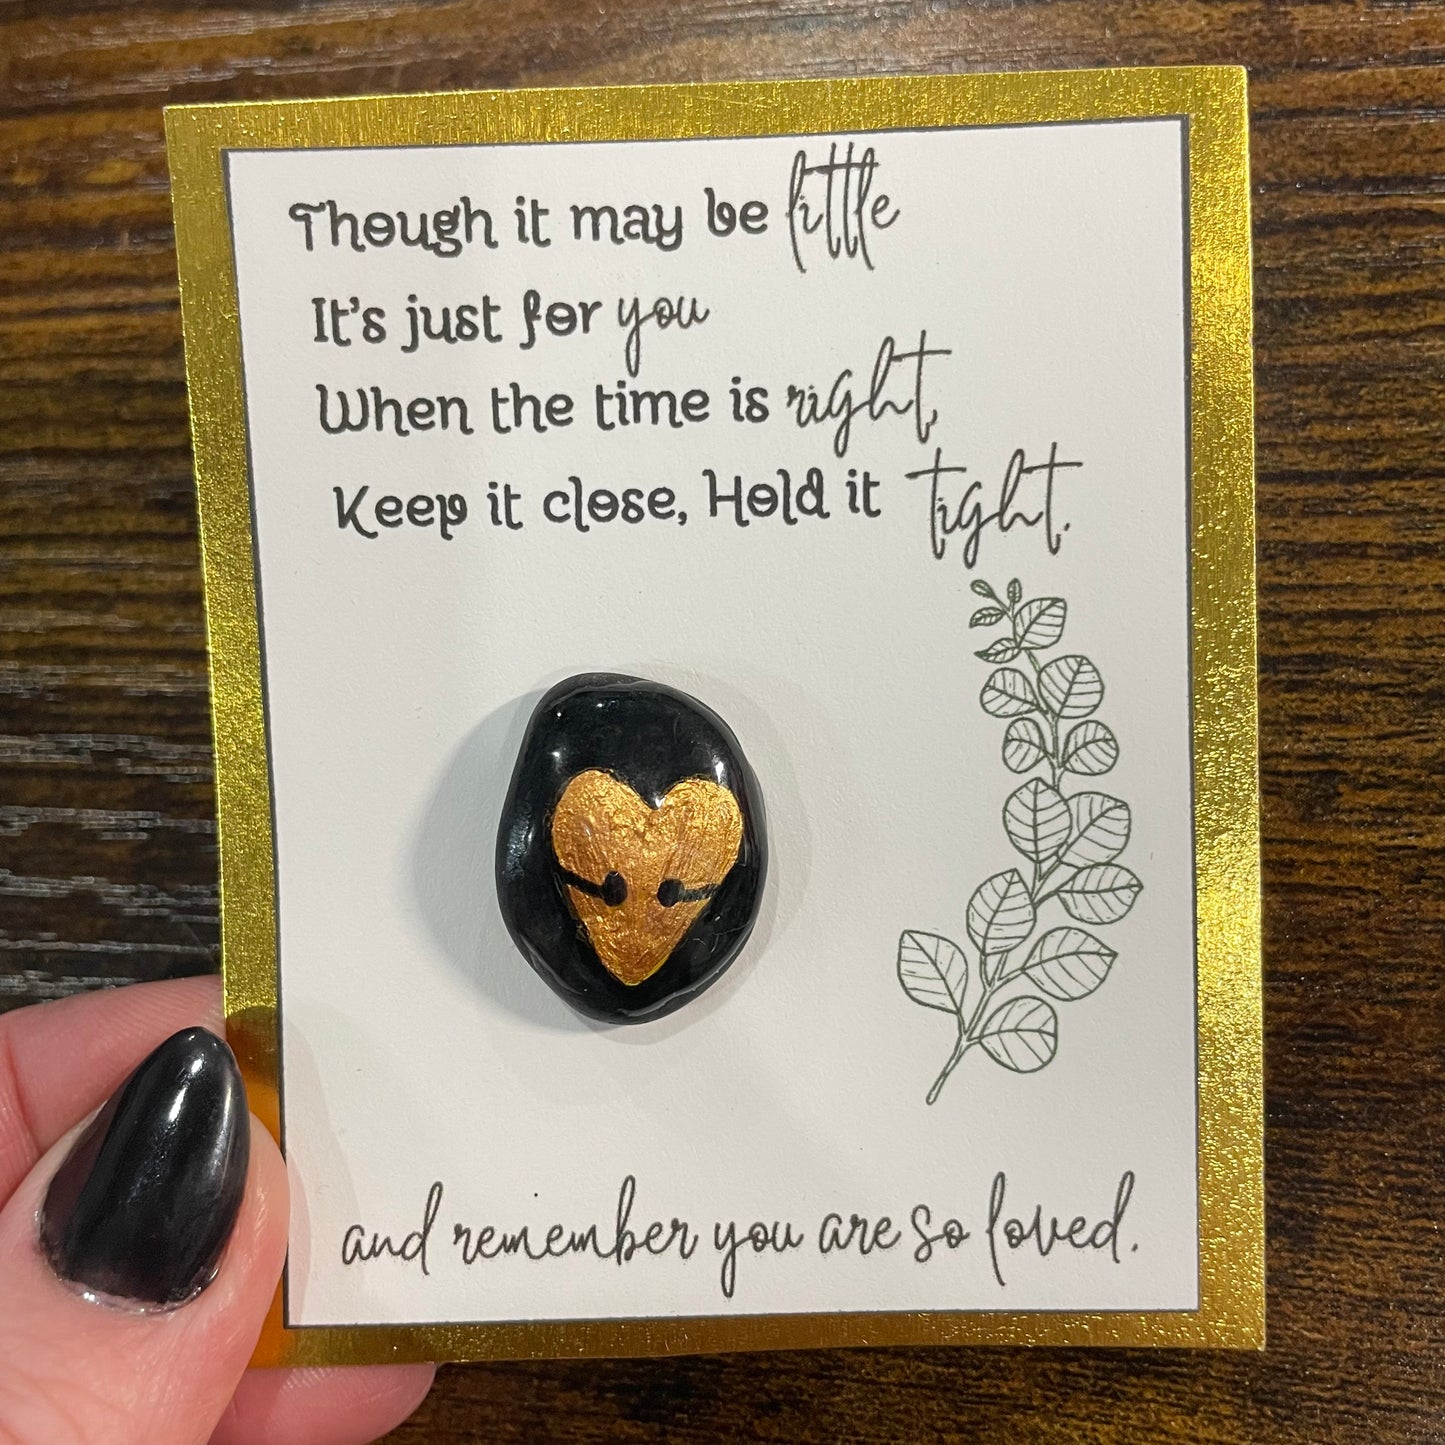 Though it may be little
It's just for you
When the time is right,
Keep it close, Hold it tight.
and remember you are so loved.